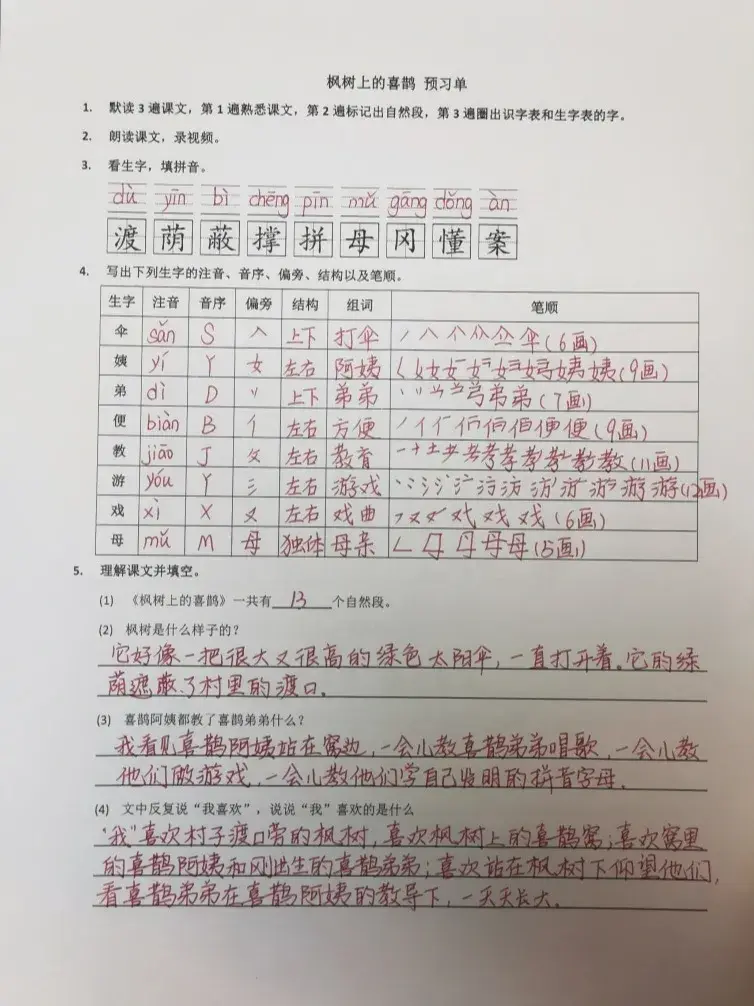 枫树上的喜鹊 预习单
1. 默读 3 遍课文，第 1 遍熟悉课文，第 2 遍标记出自然段，第 3 遍圈出识字表和生字表的字。
2. 朗读课文，录视频。
3. 看生字，填拼音。
dù yīn bì chēng pīn mǔ gāng dǒng àn
渡 荫 蔽 撑 拼 母 冈 懂 案
4. 写出下列生字的注音、音序、偏旁、结构以及笔顺。
生字 注音 音序 偏旁 结构 组词 笔顺
伞 sǎn S 人 上下 打伞 (6画)
姨 yí Y 女 左右 阿姨 (9画)
弟 dì D 丷 上下 弟弟 (7画)
便 biàn B 亻 左右 方便 (9画)
教 jiāo J 攵 左右 教育 (11画)
游 yóu Y 氵 左右 游戏 (12画)
戏 xì X 又 左右 戏曲 (6画)
母 mǔ M 母 独体 母亲 (5画)
5. 理解课文并填空。
(1) 《枫树上的喜鹊》一共有 13 个自然段。
(2) 枫树是什么样子的？
它好像一把很大又很高的绿色太阳伞，一直打开着。它的绿
荫遮蔽了村里的渡口。
(3) 喜鹊阿姨都教了喜鹊弟弟什么？
我看见喜鹊阿姨站在窝边，一会儿教喜鹊弟弟唱歌，一会儿教
他们做游戏，一会儿教他们学自己发明的拼音字母。
(4) 文中反复说“我喜欢”，说说“我”喜欢的是什么
“我”喜欢村子渡口旁的枫树，喜欢枫树上的喜鹊窝；喜欢窝里
的喜鹊阿姨和刚出生的喜鹊弟弟；喜欢站在枫树下仰望他们，
看喜鹊弟弟在喜鹊阿姨的教导下，一天天长大。